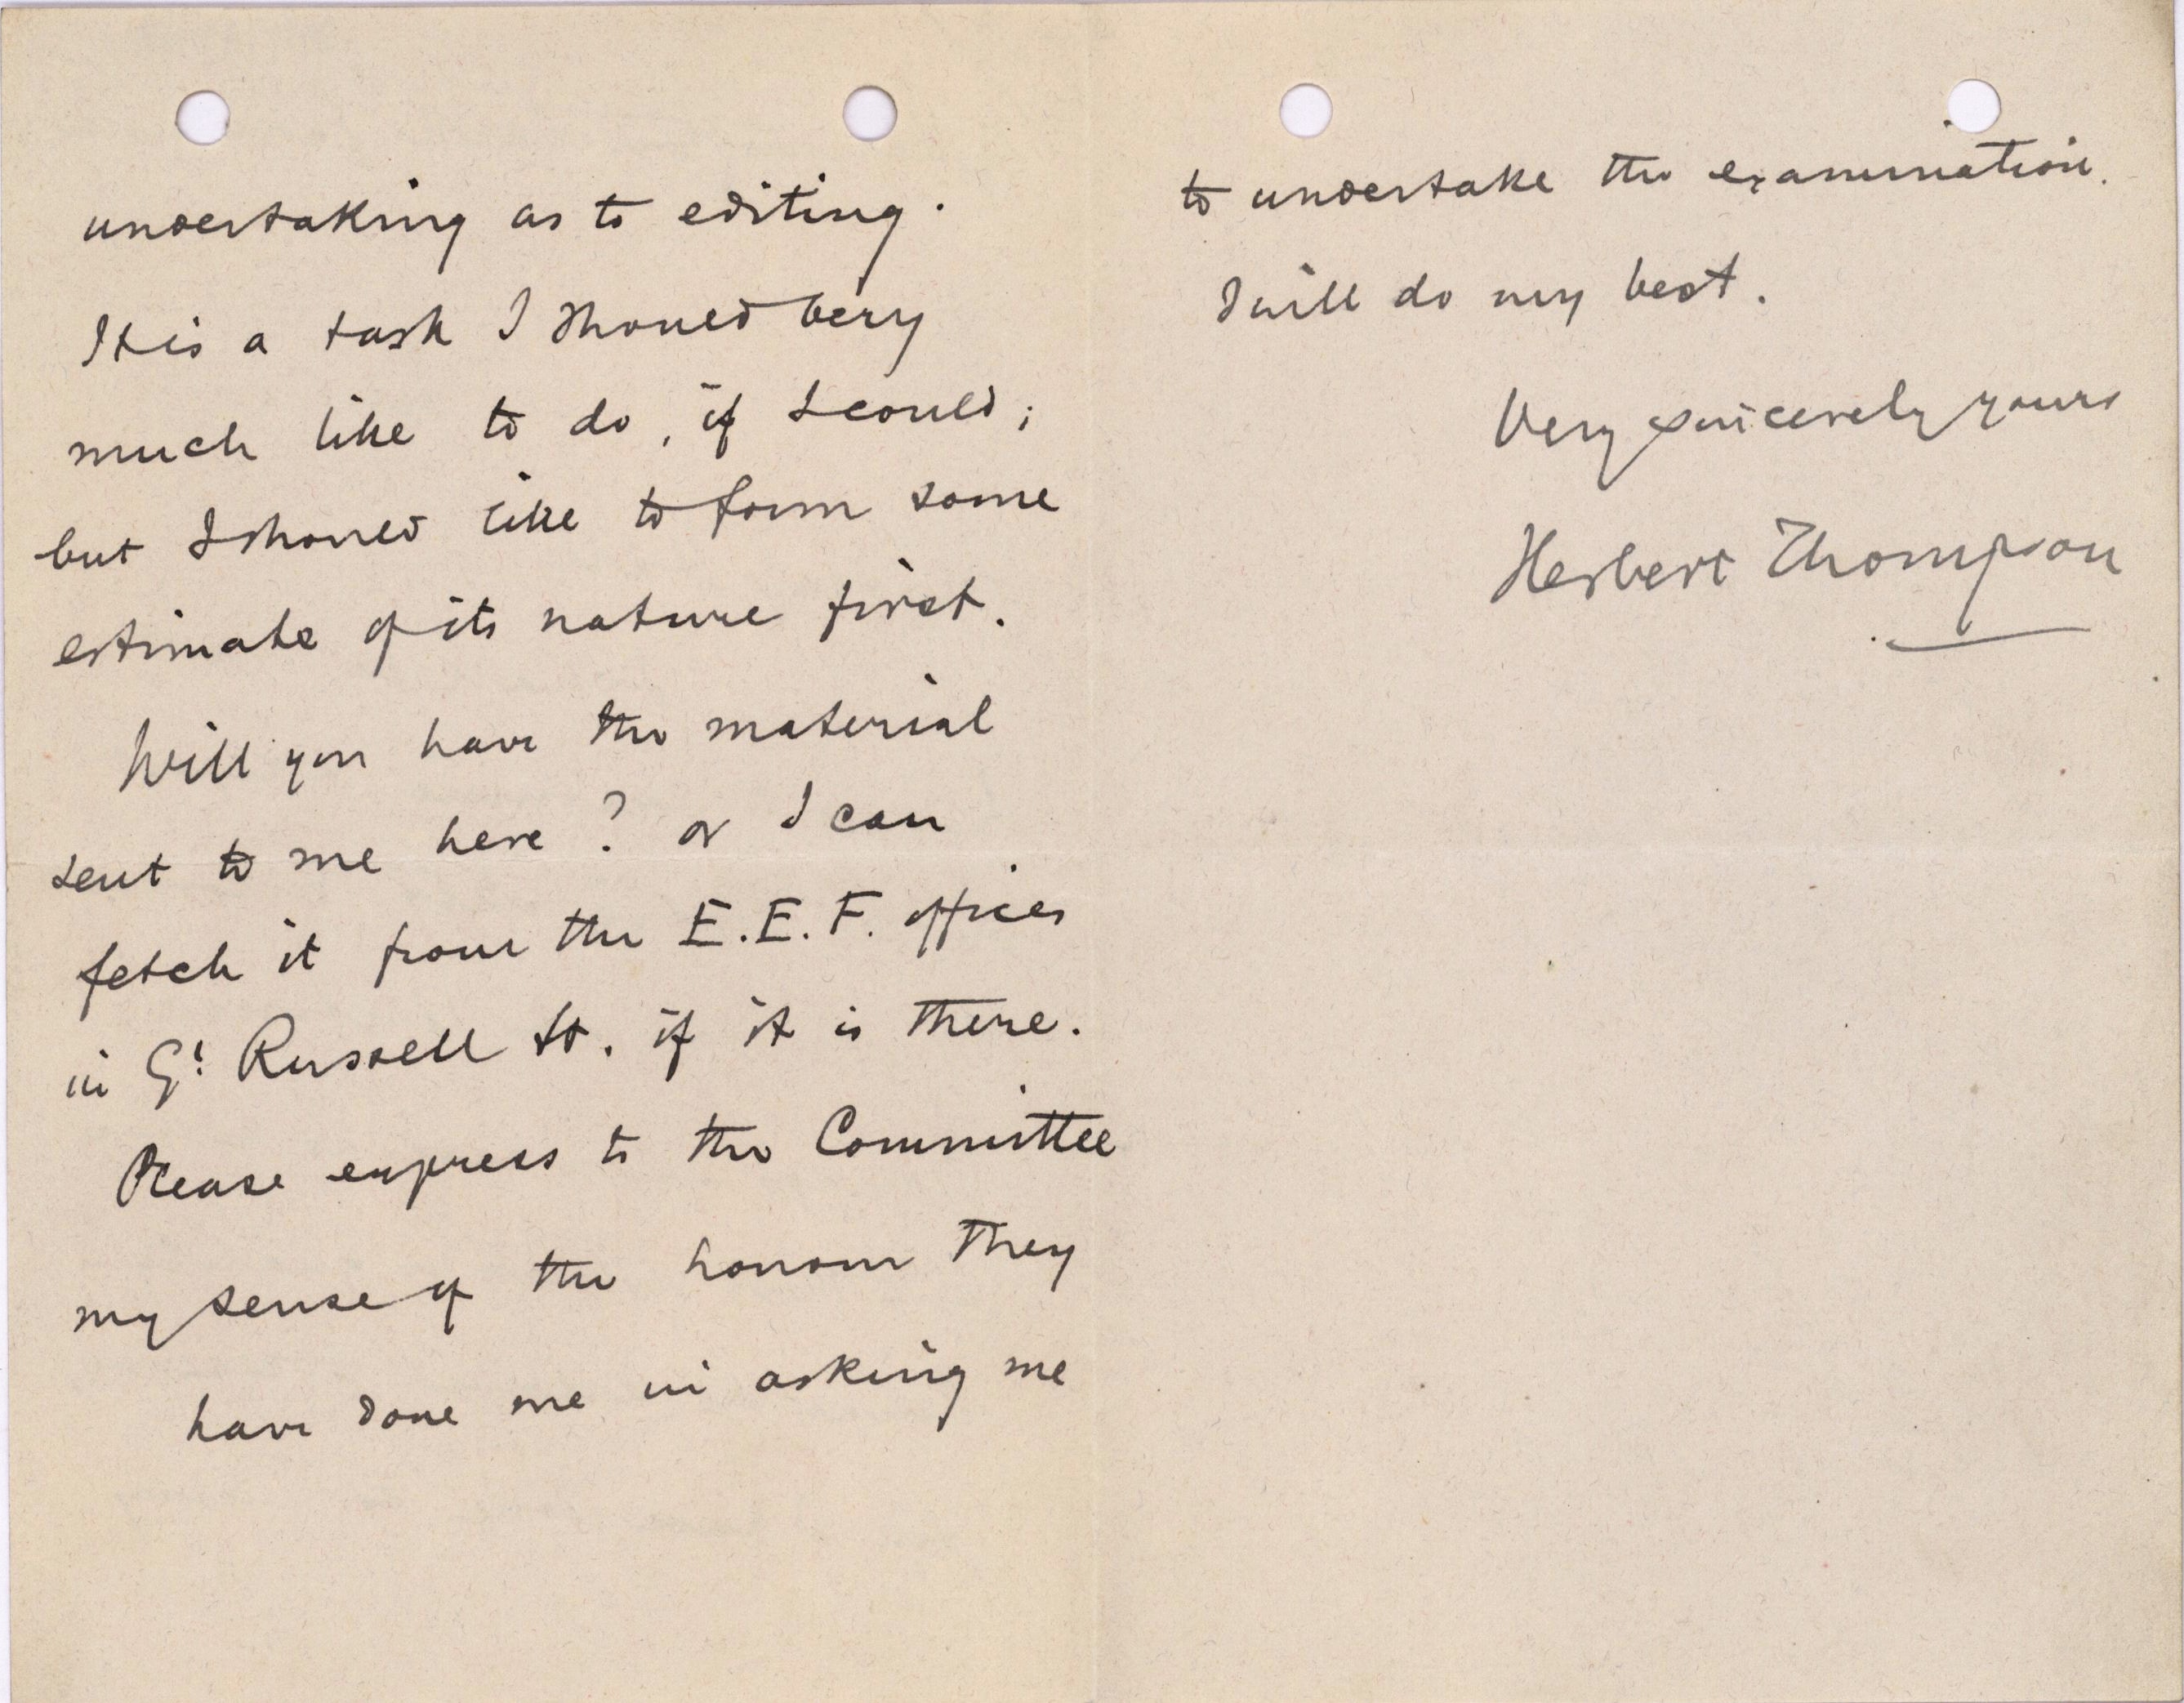 undertaking as to editing.
It is a task I should very
much like to do, if I could;
but I should like to form some
estimate of its nature first.
Will you have the material
sent to me here? or I can
fetch it from the E.E.F. offices
in Gt. Russell St. if it is there.
Please express to the Committee
my sense of the honour they
have done me in asking me
to undertake the examination.
I will do my best.
Very sincerely yours
Herbert Thompson